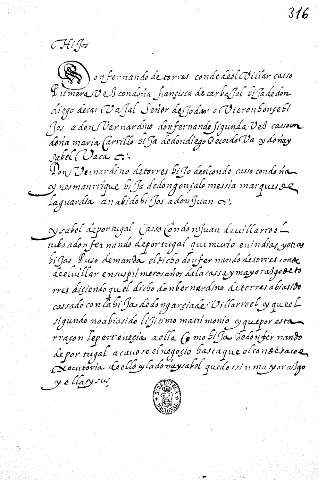 316
Hijos
Don fernando de torres conde del Villar casso
Primera Vez con doña francisca de carbajal hija de don
diego de carvajal Señor de Jodar o Vieron por sus hi
Jos a don Vernardino don fernando segunda Vez casso con
doña maria Carrillo hija de don diego de cordoVa y doña y
sabel Vaca
Don Vernardino de torres hijo del conde casso con doña
ynes manrrique hija de don gonzalo messia marques de
la guardia an abido hijos a don juan
ysabel de portugal Casso Con don Juan de villarroel
ubo a don fernando de portugal que murio en indias y otros
hijos Puso demanda el dicho don fernando de torres conde
del villar en sus primeros años de la cassa y mayorasgo de to
rres diciendo que el dicho don bernardino de torres abia sido
cassado con la hija de don garcia de Villarroel y que el
segundo no abia sido lijitimo matrimonio y que por esta
rraçon le pertenecia a ella Como hija de don fernando
de portugal acavose el negocio hasta que el conde saco
executoria de ello y la doña ysabel quedo sin mayorasgo
y ella y sus